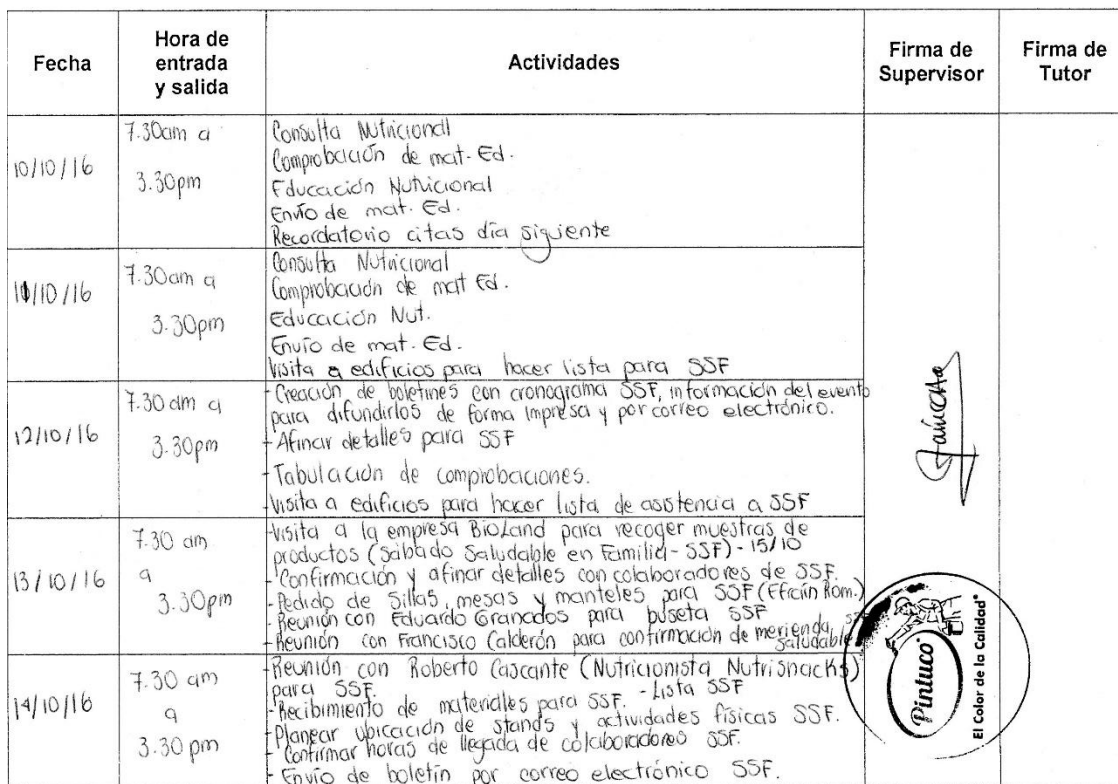 Fecha
Hora de
entrada
y salida
Actividades
Firma de
Supervisor
Firma de
Tutor
10/10/16
7.30am a
3.30pm
Consulta Nutricional
Comprobación de mat. Ed.
Educación Nutricional
Envío de mat. Ed.
Recordatorio citas día siguiente
11/10/16
7.30am a
3.30pm
Consulta Nutricional
Comprobación de mat Ed.
Educación Nut.
Envío de mat. Ed.
Visita a edificios para hacer lista para SSF
12/10/16
7.30 am a
3.30pm
- Creación de boletines con cronograma SSF, información del evento
para difundirlos de forma impresa y por correo electrónico.
- Afinar detalles para SSF
- Tabulación de comprobaciones.
- Visita a edificios para hacer lista de asistencia a SSF
13/10/16
7.30 am
a
3.30pm
- Visita a la empresa BioLand para recoger muestras de
productos (Sábado Saludable en Familia - SSF) - 15/10
- Confirmación y afinar detalles con colaboradores de SSF.
- Pedido de sillas, mesas y manteles para SSF (Efraín Rom.)
- Reunión con Eduardo Granados para buseta SSF
- Reunión con Francisco Calderón para confirmación de merienda saludable SSF
14/10/16
7.30 am
a
3.30 pm
- Reunión con Roberto Cascante (Nutricionista Nutrisnacks)
para SSF.
- Recibimiento de materiales para SSF. - Lista SSF
- Planear ubicación de stands y actividades físicas SSF.
- Confirmar horas de llegada de colaboradores SSF.
- Envío de boletín por correo electrónico SSF.
Pintuco
El Color de la Calidad